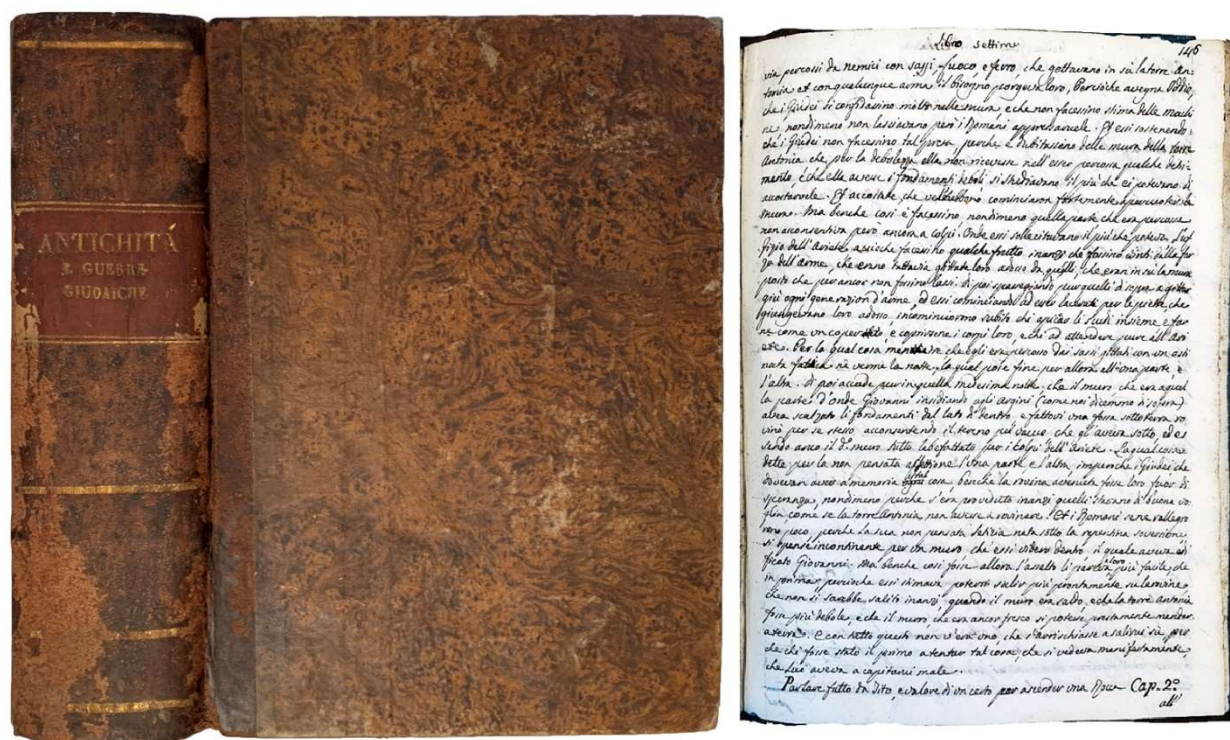 ANTICHITÁ
E GUERRE
GIUDAICHE
Libro settimo
146
via percossi da nemici con sassi, fuoco, e ferro, che gettavano in su la torre An-
tonia et con qualunque arma il bisogno porgeva loro, Perciòche avegna Dddio,
che i Giudei si confidassino molto nelle mura, e che non facessino stima delle machi
ne, nondimeno non lasciavano però i Romani appressarvele. Et essi sostenendo
ché i Giudei non facessino tal presa, perche e' dubitassono delle mura della torre
Antonia che per la debolezza ella non ricevesse nell'esser percossa qualche detri-
mento, e che ella avesse i fondamenti deboli si studiavano il più che ei potevano di
accostarvele. Et accostate che ve l'ebbono cominciaron fortemente a percuoter la
mura. Ma benche così e' facessino nondimeno quella parte che era percossa
non aconsentiva però ancora a colpi. Onde essi sollecitavano il più che poteva l'uf
figio dell'Ariete, acciò che facessino qualche frutto, inanzi che fossino vinti dalla for
za dell'arme, che erano tuttavia gittate loro adosso da quelli, che eran in su la mura
posto che per ancor non fossino lassi. Di poi quelli di sopra a gittar
giù ogni generazion d'arme, ed essi cominciando ad esser lacerati per le priette, che
giungevano loro adosso, incominciorono subito chi apiccar li scudi insieme e far
ne come un copertoio, e coprirsene i corpi loro, e chi ad attendere pure all'Ari
ete. Per la qual cosa, mentre che egli era percosso dai sassi gittati con un osti
nata fattica ne venne la notte, la qual pose fine per allora all'una parte, e
l'altra. Di poi accade pur in quella medesima notte, che il muro che era a quel
la parte d'onde Giovanni insidiando agli argini (come noi dicemmo di sopra)
avea scalzato li fondamenti dal lato di dentro e fattovi una fossa sotto terra ro
vinò per se stesso acconsentendo il tereno pel vacuo che gl'aveva sotto, ed es
sendo anco il d.º muro tutto labefattato per i colpi dell'Ariete. La qual cosa
dette per la non pensata afflitione l'una parte, e l'altra, imperche i Giudei che
dovevan aver a memoria tal cosa, benche la rovina avenuta fosse loro fuor di
speranza, nondimeno perche s'era proveduto inanzi quelli stavano di buona vo
glia come se la torre Antonia non avesse a rovinare. Et i Romani se ne rallegro
rono poco, perche la sua non pensata letizia nata sotto la repentina
si spense incontinente per un muro, che essi videro dentro il quale aveva edi
ficato Giovanni. Ma benche così fosse allora l'assalto li pareva loro più facile, che
in prima, perciòche essi stimava potervi salir più prontamente su le rovine,
che non si sarebbe salito inanzi quando il muro era saldo, e che la torre Antonia
fosse più debole, e che il muro, che era ancor fresco si potesse prestamente mandar
a terra. E con tutto questo non v'era uno, che s'avrischiasse a salirvi sù, per
che chi fosse stato il primo a tentar tal cosa, che si vedeva manifestamente,
che lui aveva a capitarvi male.
Parlare fatto da Tito, e valore di un certo per ascender una Cap. 2º
all'